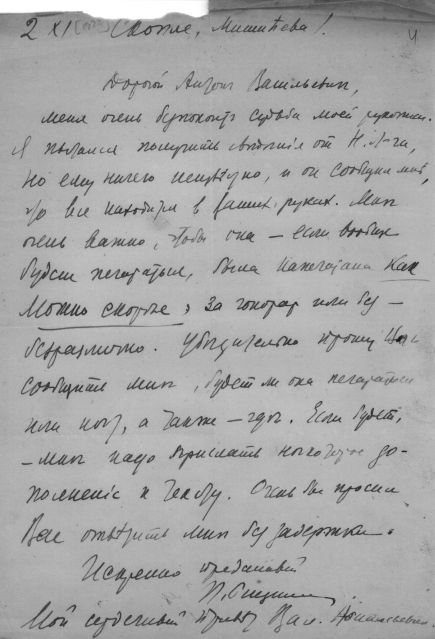 2 XI Скопле, Мишићева 1.
4
Дорогой Антон Васильевич,
меня очень беспокоит судьба моей рукописи.
Я пытался получить сведения от Н. А-ча,
но ему ничего неизвѣстно, и он сообщил мнѣ,
что все находится в ваших руках. Мнѣ
очень важно, чтобы она – если вообще
будет печататься, была напечатана как
можно скорѣе, за гонорар или без –
безразлично. Убѣдительно прошу Вас
сообщить мнѣ, будет ли она печататься
или нѣт, а также – гдѣ. Если будет,
– мнѣ надо прислать нѣкоторое до-
полненіе к тексту. Очень бы просил
Вас отвѣтить мнѣ без задержки.
Искренно преданный
П.
Мой сердечный привѣт Вал. Анатольевнѣ